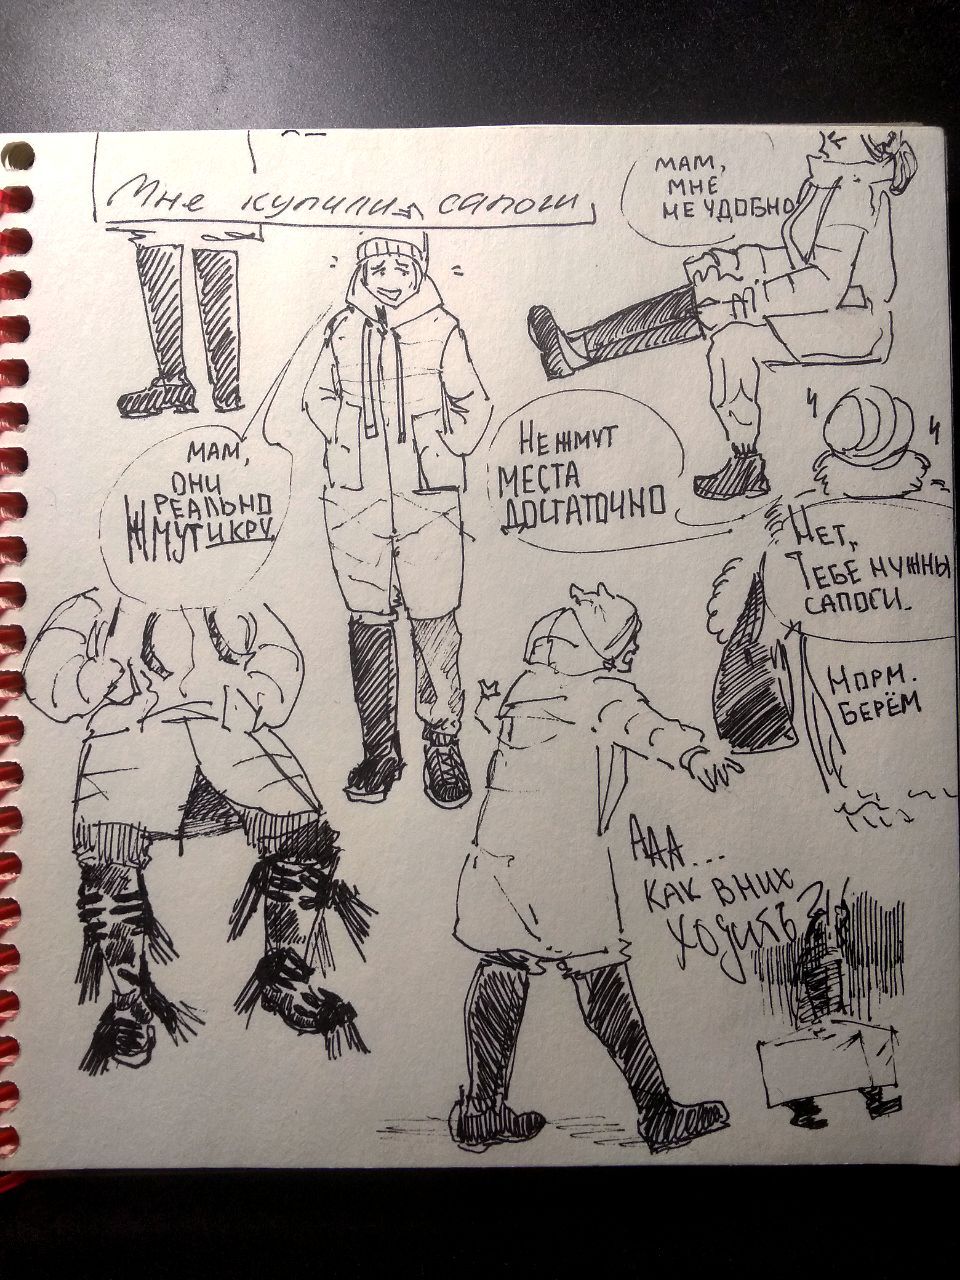 Мне купили сапоги
МАМ,
МНЕ
НЕ УДОБНО
МАМ,
ОНИ
РЕАЛЬНО
ЖМУТ ИКРУ
НЕ ЖМУТ
МЕСТА
ДОСТАТОЧНО
НЕТ,
ТЕБЕ НУЖНЫ
САПОГИ.
НОРМ.
БЕРЁМ
ААА...
КАК В НИХ
ХОДИТЬ?